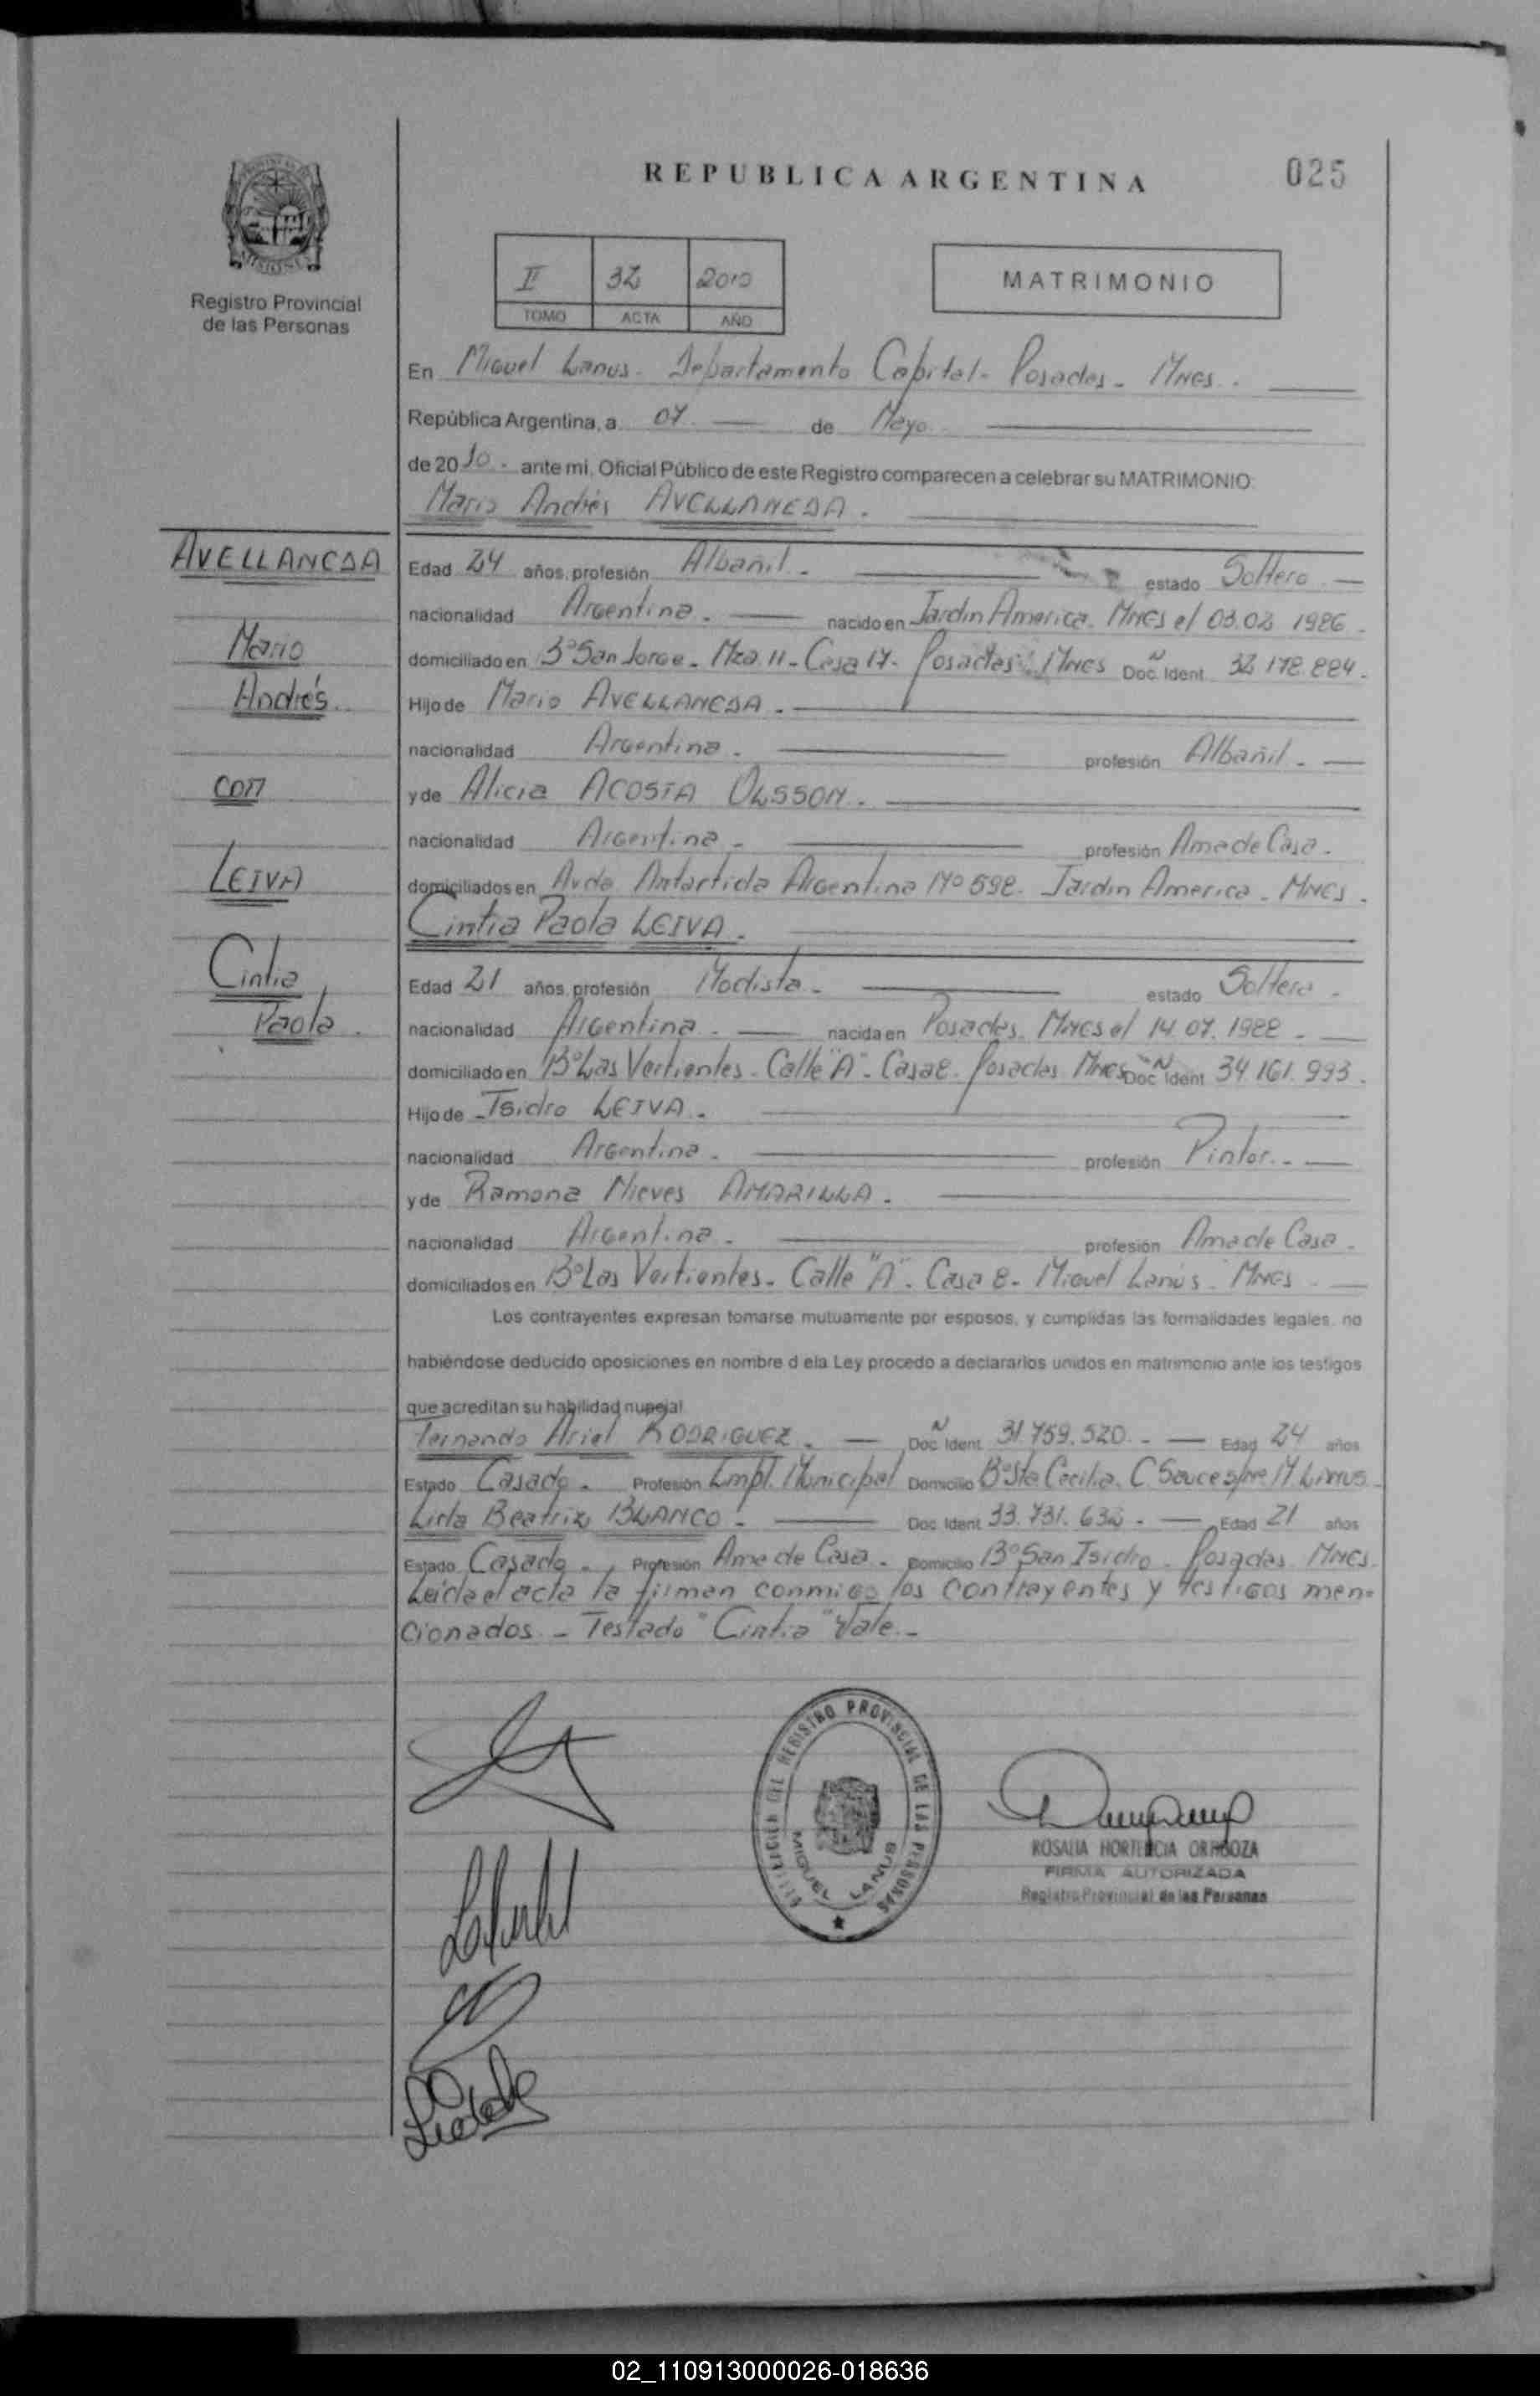 REPUBLICA ARGENTINA
025
Registro Provincial
de las Personas
II 32 2010
TOMO ACTA AÑO
MATRIMONIO
En Miguel Lanus. Departamento Capital - Posadas - Mnes.
República Argentina, a 07 de Mayo
de 2010. ante mi, Oficial Público de este Registro comparecen a celebrar su MATRIMONIO:
Mario Andrés AVELLANEDA.
AVELLANEDA
Mario
Andrés
con
LEIVA
Cintia
Paola.
Edad 24 años, profesión Albañil. estado Soltero
nacionalidad Argentina. nacido en Jardin America. Mnes el 03.02 1986.
domiciliado en B° San Jorge - Mza. 11 - Casa 17. Posadas. Mnes Doc. Ident. N 32.178.884.
Hijo de Mario AVELLANEDA.
nacionalidad Argentina. profesión Albañil.
y de Alicia ACOSTA OLSSON.
nacionalidad Argentina. profesión Ama de Casa.
domiciliados en Avda. Antartida Argentina N° 598. Jardin America. Mnes.
Cintia Paola LEIVA.
Edad 21 años, profesión Modista. estado Soltera.
nacionalidad Argentina. nacida en Posadas. Mnes el 14.07.1988.
domiciliado en B° Las Vertientes. Calle "A". Casa 8. Posadas Mnes Doc Ident N 34.161.993.
Hijo de Isidro LEIVA.
nacionalidad Argentina. profesión Pintor.
y de Ramona Nieves AMARILLA.
nacionalidad Argentina. profesión Ama de Casa.
domiciliados en B° Las Vertientes. Calle "A". Casa 8. Miguel Lanús. Mnes
Los contrayentes expresan tomarse mutuamente por esposos, y cumplidas las formalidades legales, no
habiéndose deducido oposiciones en nombre d ela Ley procedo a declararlos unidos en matrimonio ante los testigos
que acreditan su habilidad nupcial
Fernando Ariel RODRIGUEZ. Doc. Ident. N 31.759.520. Edad 24 años
Estado Casado. Profesión Empl. Municipal Domicilio B° Sta Cecilia. C. M. Lanus
Lidia Beatriz BLANCO. Doc. Ident. 33.731.632. Edad 21 años
Estado Casado. Profesión Ama de Casa. Domicilio B° San Isidro. Posadas Mnes.
Leida el acta la firman conmigo los contrayentes y testigos men-
cionados. - Testado "Cintia" Vale. -
DEL REGISTRO PROVINCIAL DE LAS PERSONAS
MIGUEL LANUS
ROSALIA HORTENCIA ORTIGOZA
FIRMA AUTORIZADA
Registro Provincial de las Personas
02_110913000026-018636